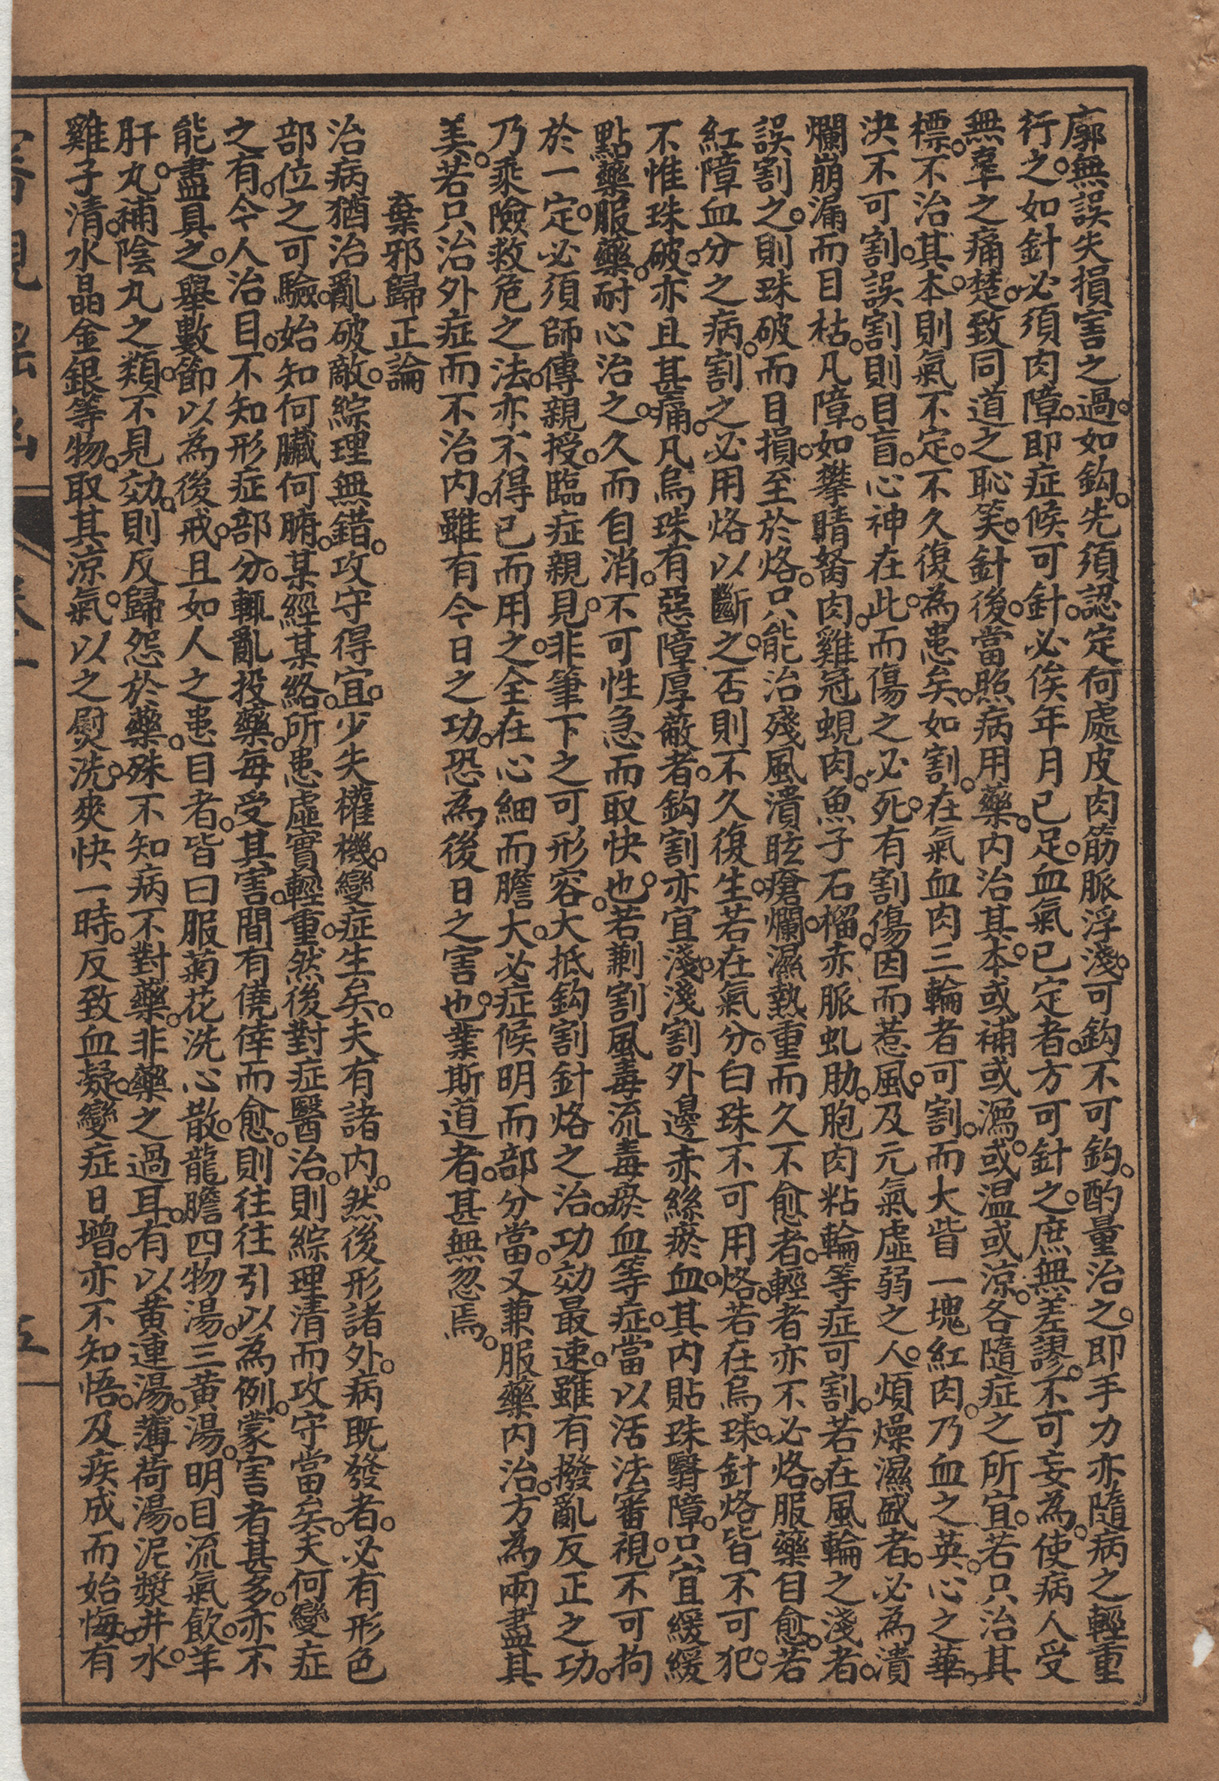 廓無誤失損害之過。如鈎。先須認定何處皮肉筋脈浮淺。可鈎不可鈎。酌量治之。即手力亦隨病之輕重
行之。如針必須肉障。即症候可針。必俟年月已足。血氣已定者。方可針之。庶無差謬。不可妄為。使病人受
無辜之痛楚。致同道之恥笑。針後。當照病用藥。內治其本。或補或瀉。或温或涼。各隨症之所宜。若只治其
標。不治其本。則氣不定。不久復為患矣。如割。在氣血肉三輪者可割。而大眥一塊紅肉。乃血之英。心之華。
決不可割。誤割則目盲。心神在此。而傷之必死。有割傷。因而惹風。及元氣虛弱之人。煩燥濕盛者。必為潰
爛崩漏而目枯。凡障。如攀睛胬肉。雞冠蜆肉。魚子石榴。赤脈虬肋。胞肉粘輪等症可割。若在風輪之淺者。
誤割之。則珠破而目損。至於烙。只能治殘風潰眩瘡爛。濕熱重而久不愈者。輕者亦不必烙。服藥自愈。若
紅障血分之病。割之必用烙以斷之。否則不久復生。若在氣分。白珠不可用烙。若在烏珠。針烙皆不可犯。
不惟珠破。亦且甚痛。凡烏珠有惡障厚蔽者。鈎割亦宜淺。淺割外邊赤絲瘀血。其內貼珠翳障。只宜緩緩
點藥服藥。耐心治之。久而自消。不可性急而取快也。若劆割風毒流毒瘀血等症。當以活法審視。不可拘
於一定。必須師傳親授。臨症親見。非筆下之可形容。大抵鈎割針烙之治。功効最速。雖有撥亂反正之功。
乃乘險救危之法。亦不得已而用之。全在心細而膽大。必症候明而部分當。又兼服藥內治。方為兩盡其
美。若只治外症而不治內。雖有今日之功。恐為後日之害也。業斯道者。甚無忽焉。
棄邪歸正論
治病猶治亂破敵。綜理無錯。攻守得宜。少失權機。變症生矣。夫有諸內。然後形諸外。病既發者。必有形色
部位之可驗。始知何臟何腑。某經某絡。所患虛實輕重。然後對症醫治。則綜理清而攻守當矣。夫何變症
之有。今人治目。不知形症部分。輒亂投藥。毎受其害。間有僥倖而愈。則往往引以為例。蒙害者甚多。亦不
能盡具之。舉數節以為後戒。且如人之患目者。皆曰服菊花洗心散。龍膽四物湯。三黃湯。明目流氣飲。羊
肝丸。補陰丸之類。不見効。則反歸怨於藥。殊不知病不對藥。非藥之過耳。有以黃連湯。薄荷湯。泥漿井水。
雞子清。水晶金銀等物。取其涼氣以之熨洗。爽快一時。反致血凝。變症日增。亦不知悟。及疾成而始悔。有
五